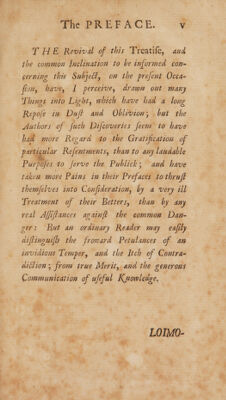 The PREFACE. v
THE Revival of this Treatiſe, and
the common Inclination to be informed con-
cerning this Subject, on the preſent Occa-
ſion, have, I perceive, drawn out many
Things into Light, which have had a long
Repoſe in Duſt and Oblivion; but the
Authors of ſuch Diſcoveries ſeem to have
had more Regard to the Gratification of
particular Reſentments, than to any laudable
Purpoſes to ſerve the Publick; and have
taken more Pains in their Prefaces to thruſt
themſelves into Conſideration, by a very ill
Treatment of their Betters, than by any
real Aſſiſtances againſt the common Dan-
ger: But an ordinary Reader may eaſily
diſtinguiſh the froward Petulances of an
invidious Temper, and the Itch of Contra-
diction; from true Merit, and the generous
Communication of uſeful Knowledge.
LOIMO-